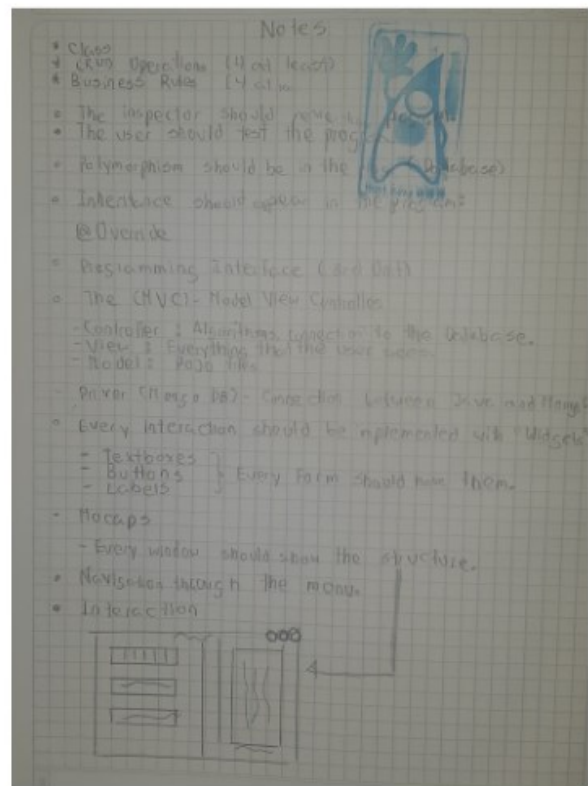 Notes
* Class
* CRUD Operations (4 at least)
* Business Rules (4 at le
• The inspector should
• The user should test the prog
• Polymorphism should be in the
• Inheritace should appear in the program:
@Override
• Programming Interface
• The (MVC) - Model View Controller
- Controller : Algorithms, connection to the Database.
- View : Everything that the user
- Model : POJO files
- Driver (Mongo DB) - Connection between Java and Mongo
• Every Interaction should be inplemented with "Widgets"
- Textboxes
- Buttons
- Labels
Every Form should have them.
- Mocaps
- Every window should show the structure.
• Navigation through the menu.
• Interaction